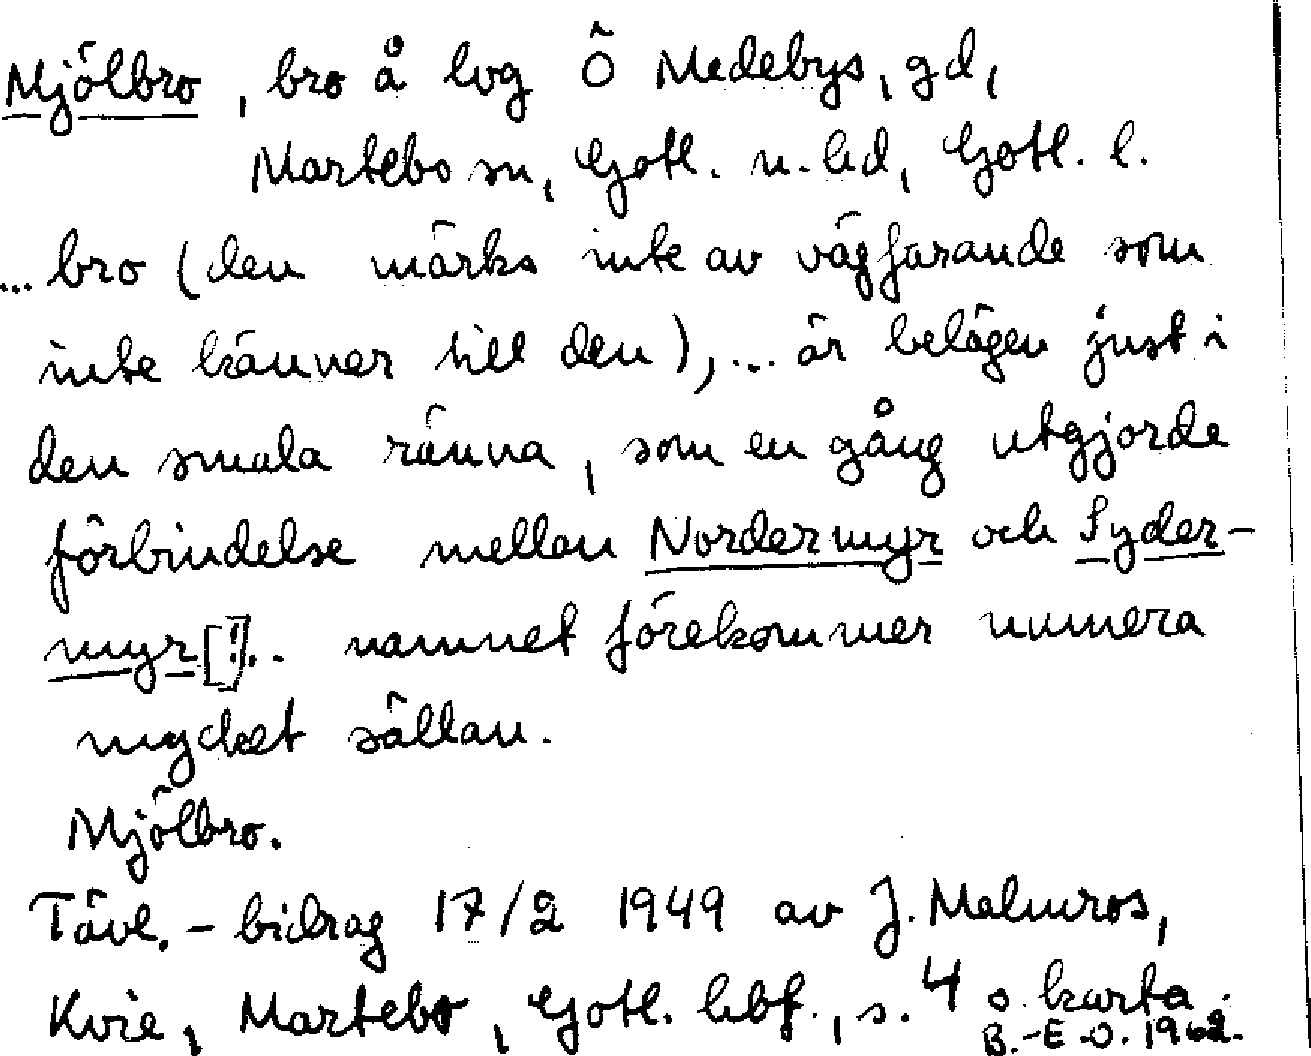 Mjölbro, bro å lvg Ö Medebys, gd,
Martebo sn, Gotl. n. hd, Gotl. l.
... bro (den märks inte av vägfarande som
inte känner till den), ... är belägen just i
den smala ränna, som en gång utgjorde
förbindelse mellan Nordermyr och Syder-
myr[!].. namnet förekommer numera
mycket sällan.
Mjölbro.
Tävl.-bidrag 17/2 1949 av J. Malmros,
Kvie, Martebo, Gotl. hbf., s. 4 o. karta.
B.-E.O. 1962.